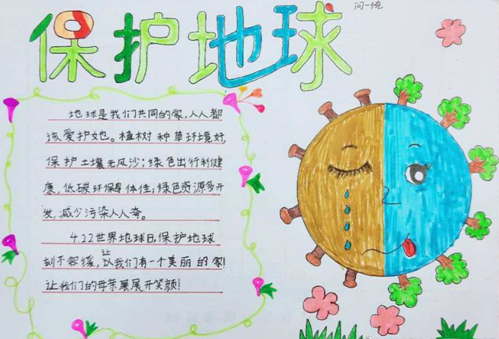 保护地球
地球是我们共同的家，人人都
该爱护她。植树种草环境好，
保护土壤无风沙；绿色出行利健
康，低碳环保导体佳；绿色资源多开
发，减少污染人人夸。
4.22世界地球日，保护地球
刻不容缓，让我们有一个美丽的家！
让我们的母亲展开笑颜！